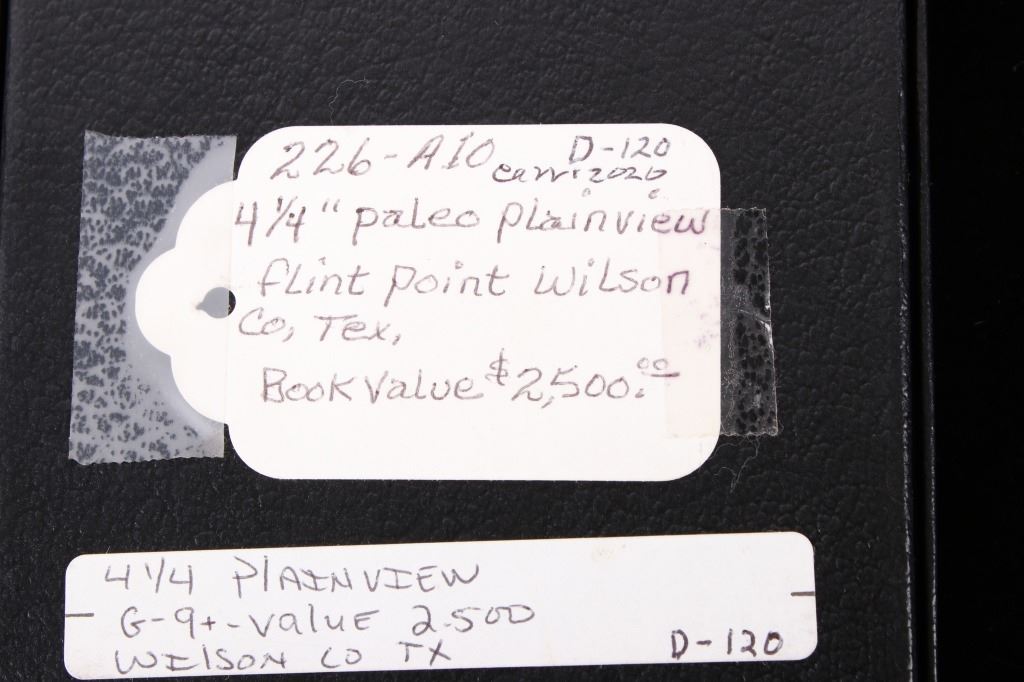 226-A10 D-120
2020
4 1/4" paleo plainview
flint point Wilson
Co, Tex,
Book Value $2,500.00
4 1/4 PLAINVIEW
G-9+-value 2.500
WILSON CO TX D-120